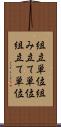 組立単位組
み立て単位
組立て単位